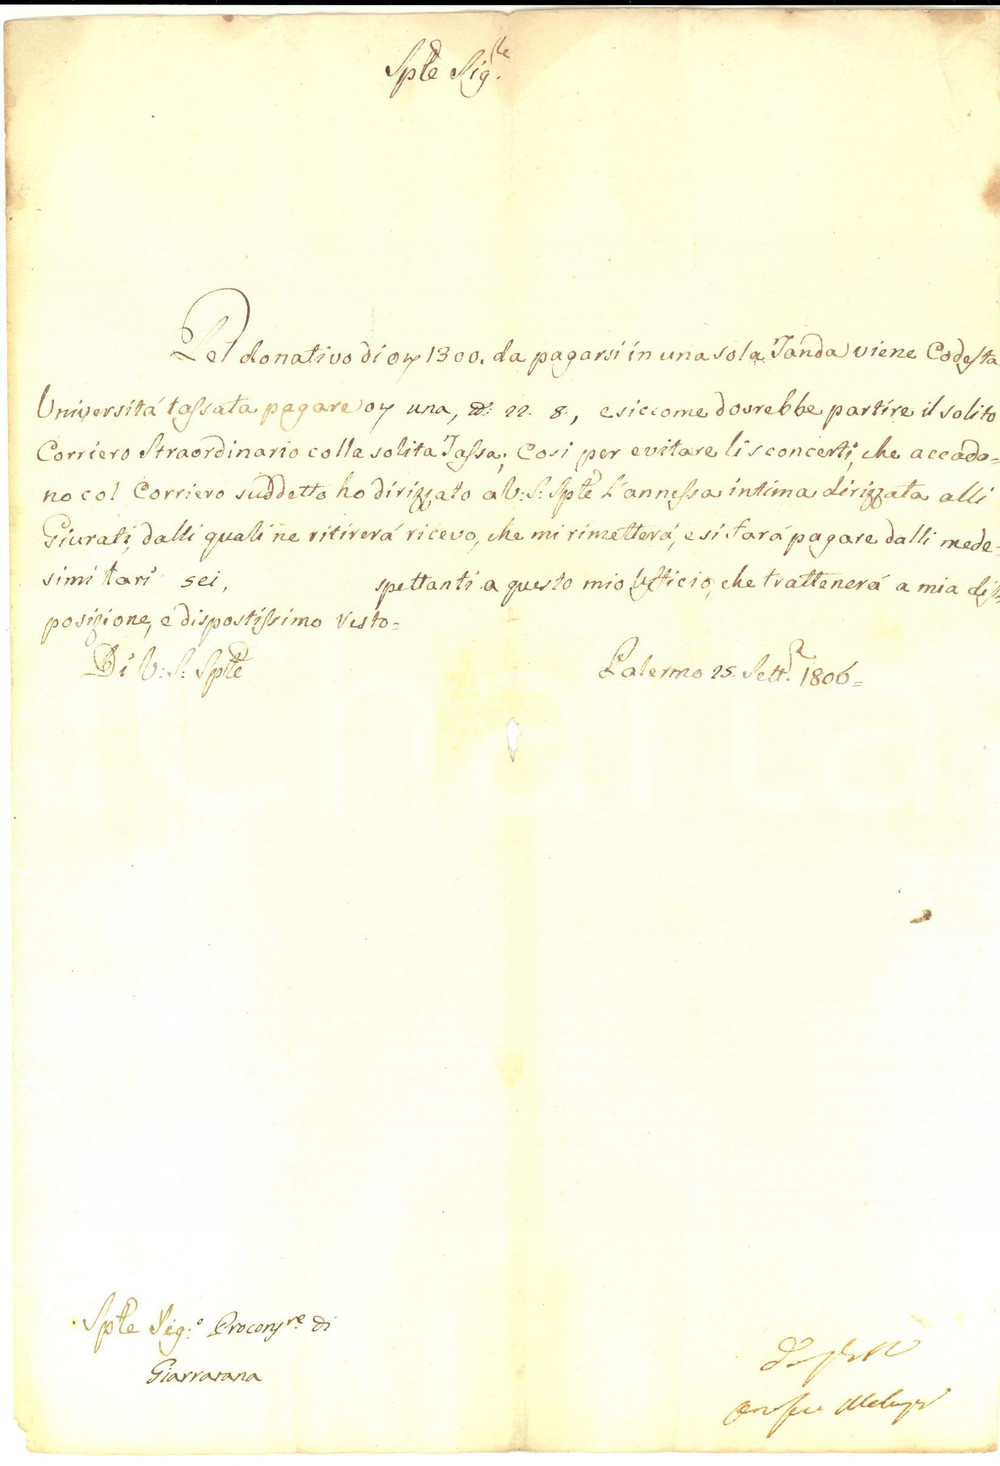 Sple Sig.re
Pel donativo di oz 1300. da pagarsi in una sola Tanda viene Codesta
Università tassata pagare oz una, tt: 22. 8., e siccome dovrebbe partire il solito
Corriero Straordinario colla solita Tassa; Così per evitare li sconcerti, che accado=
no col Corriero suddetto ho dirizzato a V: S: Sple l'annessa intima dirizzata alli
Giurati, dalli quali ne ritirerà ricevo, che mi rimetterà, e si farà pagare dalli mede=
simi tarì sei, spettanti a questo mio Ufficio, che tratterrà a mia dis=
posizione, e dispostissimo resto=
Di V: S: Sple
Palermo 25. Sett.e 1806=
Sple Sig.o Procons.re di
Giarratana